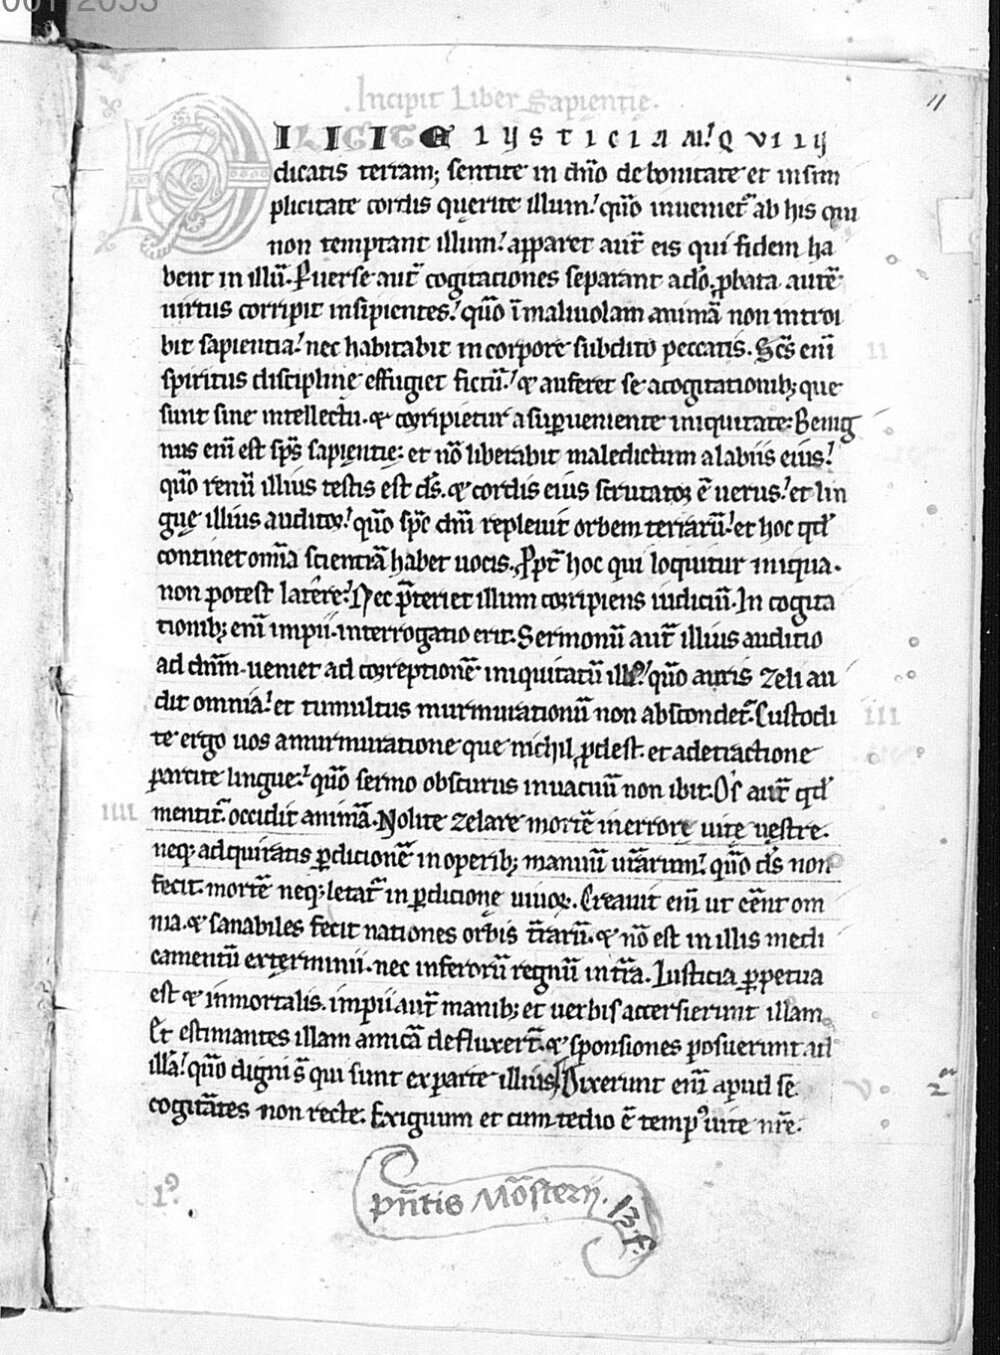 Incipit Liber Sapientię.
DILIGITE IUSTICIAM. QUI IU
dicatis terram; sentite in dn̄o de bonitate et in sim
plicitate cordis querite illum. qūo inuenietᷣ ab his qui
non temptant illum. apparet aut̄ eis qui fidem ha
bent in illū. Puerse aut̄ cogitationes separant a dō. ꝓbata autē
uirtus corripit insipientes. qūo ī maliuolam animā non introi
bit sapientia. nec habitabit in corpore subdito peccatis. Sc̄s enī
spiritus discipline effugiet fictū. & auferet se a cogitationib; que
sunt sine intellectu. & corripietur a suꝑueniente iniquitate. Benig
nus enī est sp̄s sapientię: et nō liberabit maledictum a labiis eius.
qūo renū illius testis est d̄s. & cordis eius scrutatoꝛ ē uerus. et lin
guę illius auditoꝛ. qūo sp̄c dn̄i repleuit orbem terrarū. et hoc qd̄
continet omīa scientiā habet uocis. Ꝓpt̄ hoc qui loquitur iniqua.
non potest latere. Nec p̄teriet illum corripiens iudiciū. In cogita
tionib; enī impii. interrogatio erit. Sermonū aut̄ illius auditio
ad dn̄m. ueniet ad coꝛreptionē iniquitatū illiꝰ. qūo auris zeli au
dit omnia. et tumultus murmurationū non abscondet̄. Custodi
te ergo uos a murmuratione que nichil ꝓdest. et a detractione
parcite lingue. qūo sermo obscurus in uacuū non ibit. Os aut̄ qd̄
mentit̄. occidit animā. Nolite zelare mortē in errore uitę uestre.
neq; adquiratis ꝑdicionē in operib; manuū ur̄arum. qūo d̄s non
fecit. mortē neq; letat̄ in ꝑdicione uiuoꝝ. Creauit enī ut eēnt om
nia. & sanabiles fecit nationes orbis t̄rarū. & nō est in illis medi
camentū exterminii. nec inferorū regnū in t̄ra. Iusticia ꝑpetua
est & inmortalis. impii aut̄ manib; et uerbis accersierunt illam
Et estimantes illam amicā defluxert̄. & sponsiones posuerunt ad
illā. qūo digni s̄ qui sunt ex parte illius. Dixerunt enī apud se
cogitātes non recte. Exiguum et cum tedio ē tempꝰ uite nr̄e.
pn̄tis Mōsterij. 13. f.
11
II
III
IIII
V
2ª
1º